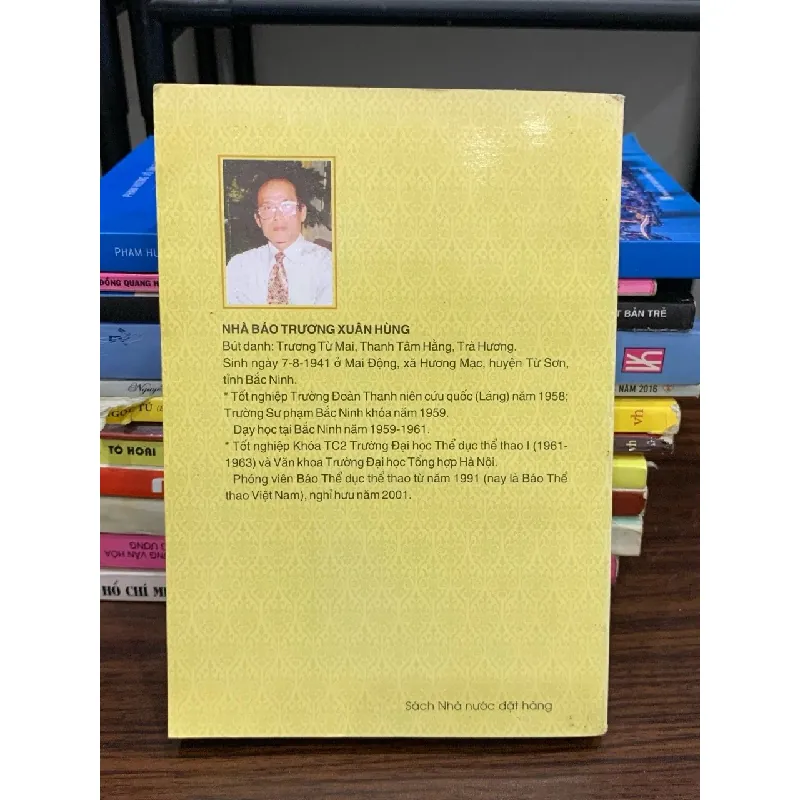 NHÀ BÁO TRƯƠNG XUÂN HÙNG
Bút danh: Trương Từ Mai, Thanh Tâm Hằng, Trà Hương.
Sinh ngày 7-8-1941 ở Mai Động, xã Hương Mạc, huyện Từ Sơn,
tỉnh Bắc Ninh.
* Tốt nghiệp Trường Đoàn Thanh niên cứu quốc (Láng) năm 1958;
Trường Sư phạm Bắc Ninh khóa năm 1959.
Dạy học tại Bắc Ninh năm 1959-1961.
* Tốt nghiệp Khóa TC2 Trường Đại học Thể dục thể thao I (1961-
1963) và Văn khoa Trường Đại học Tổng hợp Hà Nội.
Phóng viên Báo Thể dục thể thao từ năm 1991 (nay là Báo Thể
thao Việt Nam), nghỉ hưu năm 2001.
Sách Nhà nước đặt hàng
PHẠM HƯ
ĐỒNG QUANG H
Nguyễ
TÔ HOÀI
HỒ CHÍ M
T BẢN TRẺ
NĂM 2016
vh
vh